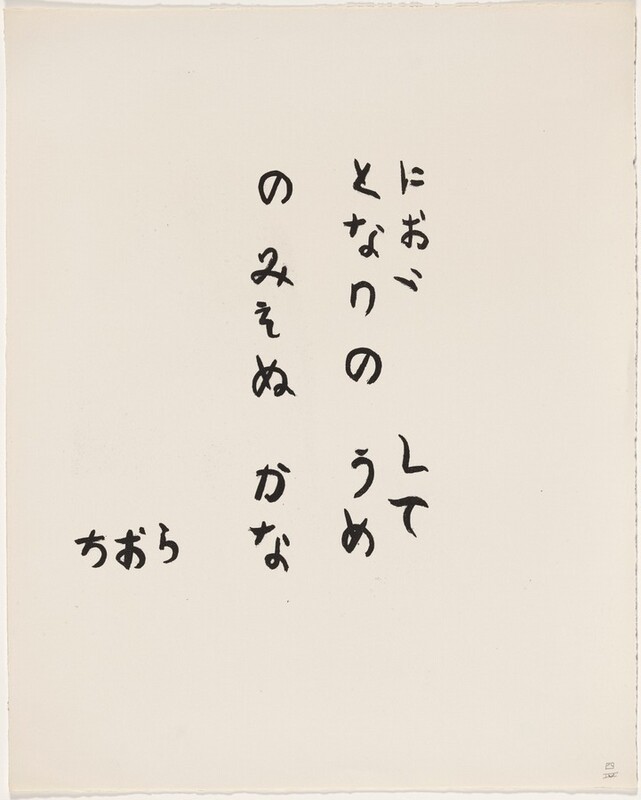 におい して
となりの うめ
の みえぬ かな
ちおら